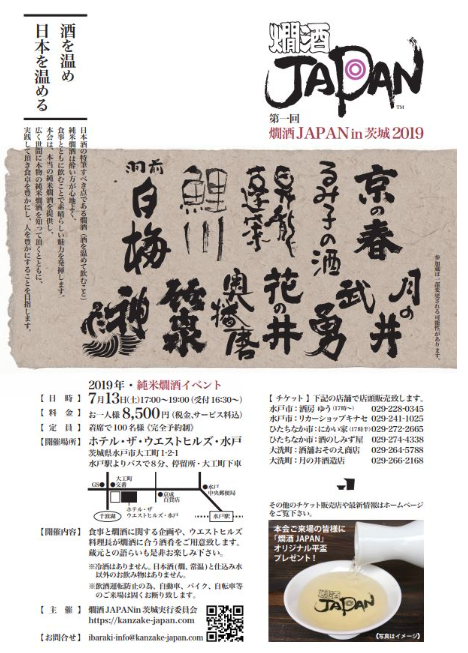 酒を温め
日本を温める
日本酒の特筆すべき点である燗酒（酒を温めて飲むこと）
純米燗酒は酔い方が心地よく、
食事とともに飲むことで素晴らしい魅力を発揮します。
本会は、本当の純米燗酒を提供し、
広く世間に本物の純米燗酒を知って頂くとともに、
実践して頂き食卓を豊かにし、人を豊かにすることを目指します。
燗酒
JAPAN
TM
第一回
燗酒JAPAN in 茨城 2019
京の春
るみ子の酒
昇龍蓬莱
鯉川
洞前
白梅
月の井
武勇
花の井
奥播磨
神
参加蔵は一部変更される可能性があります。
2019年・純米燗酒イベント
【日 時】7月13日(土)17:00〜19:00（受付16:30〜）
【料 金】お一人様 8,500円（税金、サービス料込）
【定 員】着席で100名様《完全予約制》
【開催場所】ホテル・ザ・ウエストヒルズ・水戸
茨城県水戸市大工町1-2-1
水戸駅よりバスで8分、停留所・大工町下車
大工町
GS
交番
京成百貨店
水戸中央郵便局
ホテル・ザ ウエストヒルズ・水戸
千波湖
水戸駅
【開催内容】食事と燗酒に関する企画や、ウエストヒルズ
料理長が燗酒に合う酒肴をご用意致します。
蔵元との語らいも是非お楽しみ下さい。
※冷酒はありません。日本酒（燗、常温）と仕込み水
以外のお飲み物はありません。
※飲酒運転防止の為、自動車、バイク、自転車等
のご来場は固くお断り致します。
【主 催】燗酒JAPANin茨城実行委員会
https://kanzake-japan.com
【お問合せ】ibaraki-info@kanzake-japan.com
【チケット】下記の店舗で店頭販売致します。
水戸市：酒房 ゆう（17時〜） 029-228-0345
水戸市：リカーショップキナセ 029-241-1025
ひたちなか市：にかい家（17時半） 029-272-2665
ひたちなか市：酒のしみず屋 029-274-4338
大洗町：酒舗おそのえ商店 029-264-5788
大洗町：月の井酒造店 029-266-2168
その他のチケット販売店や最新情報はホームページ
をご覧下さい。
本会ご来場の皆様に
「燗酒 JAPAN」
オリジナル平盃
プレゼント！
燗酒
JAPAN
【写真はイメージ】